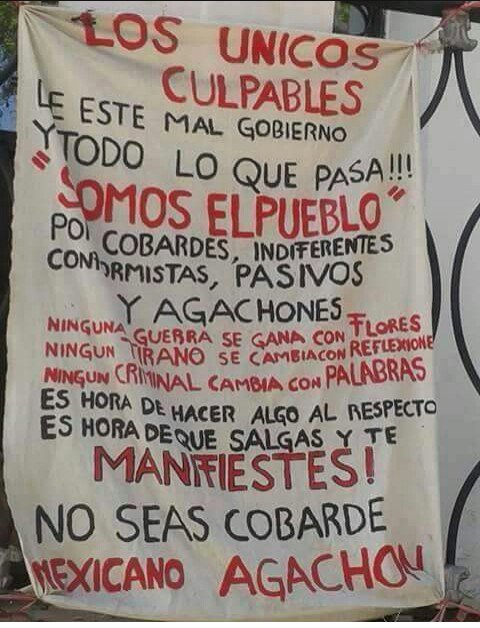 LOS UNICOS
CULPABLES
LE ESTE MAL GOBIERNO
Y TODO LO QUE PASA!!!
"SOMOS EL PUEBLO"
POR COBARDES, INDIFERENTES
CONFORMISTAS, PASIVOS
Y AGACHONES
NINGUNA GUERRA SE GANA CON FLORES
NINGUN TIRANO SE CAMBIA CON REFLEXIONE
NINGUN CRIMINAL CAMBIA CON PALABRAS
ES HORA DE HACER ALGO AL RESPECTO
ES HORA DE QUE SALGAS Y TE
MANIFIESTES!
NO SEAS COBARDE
MEXICANO AGACHON